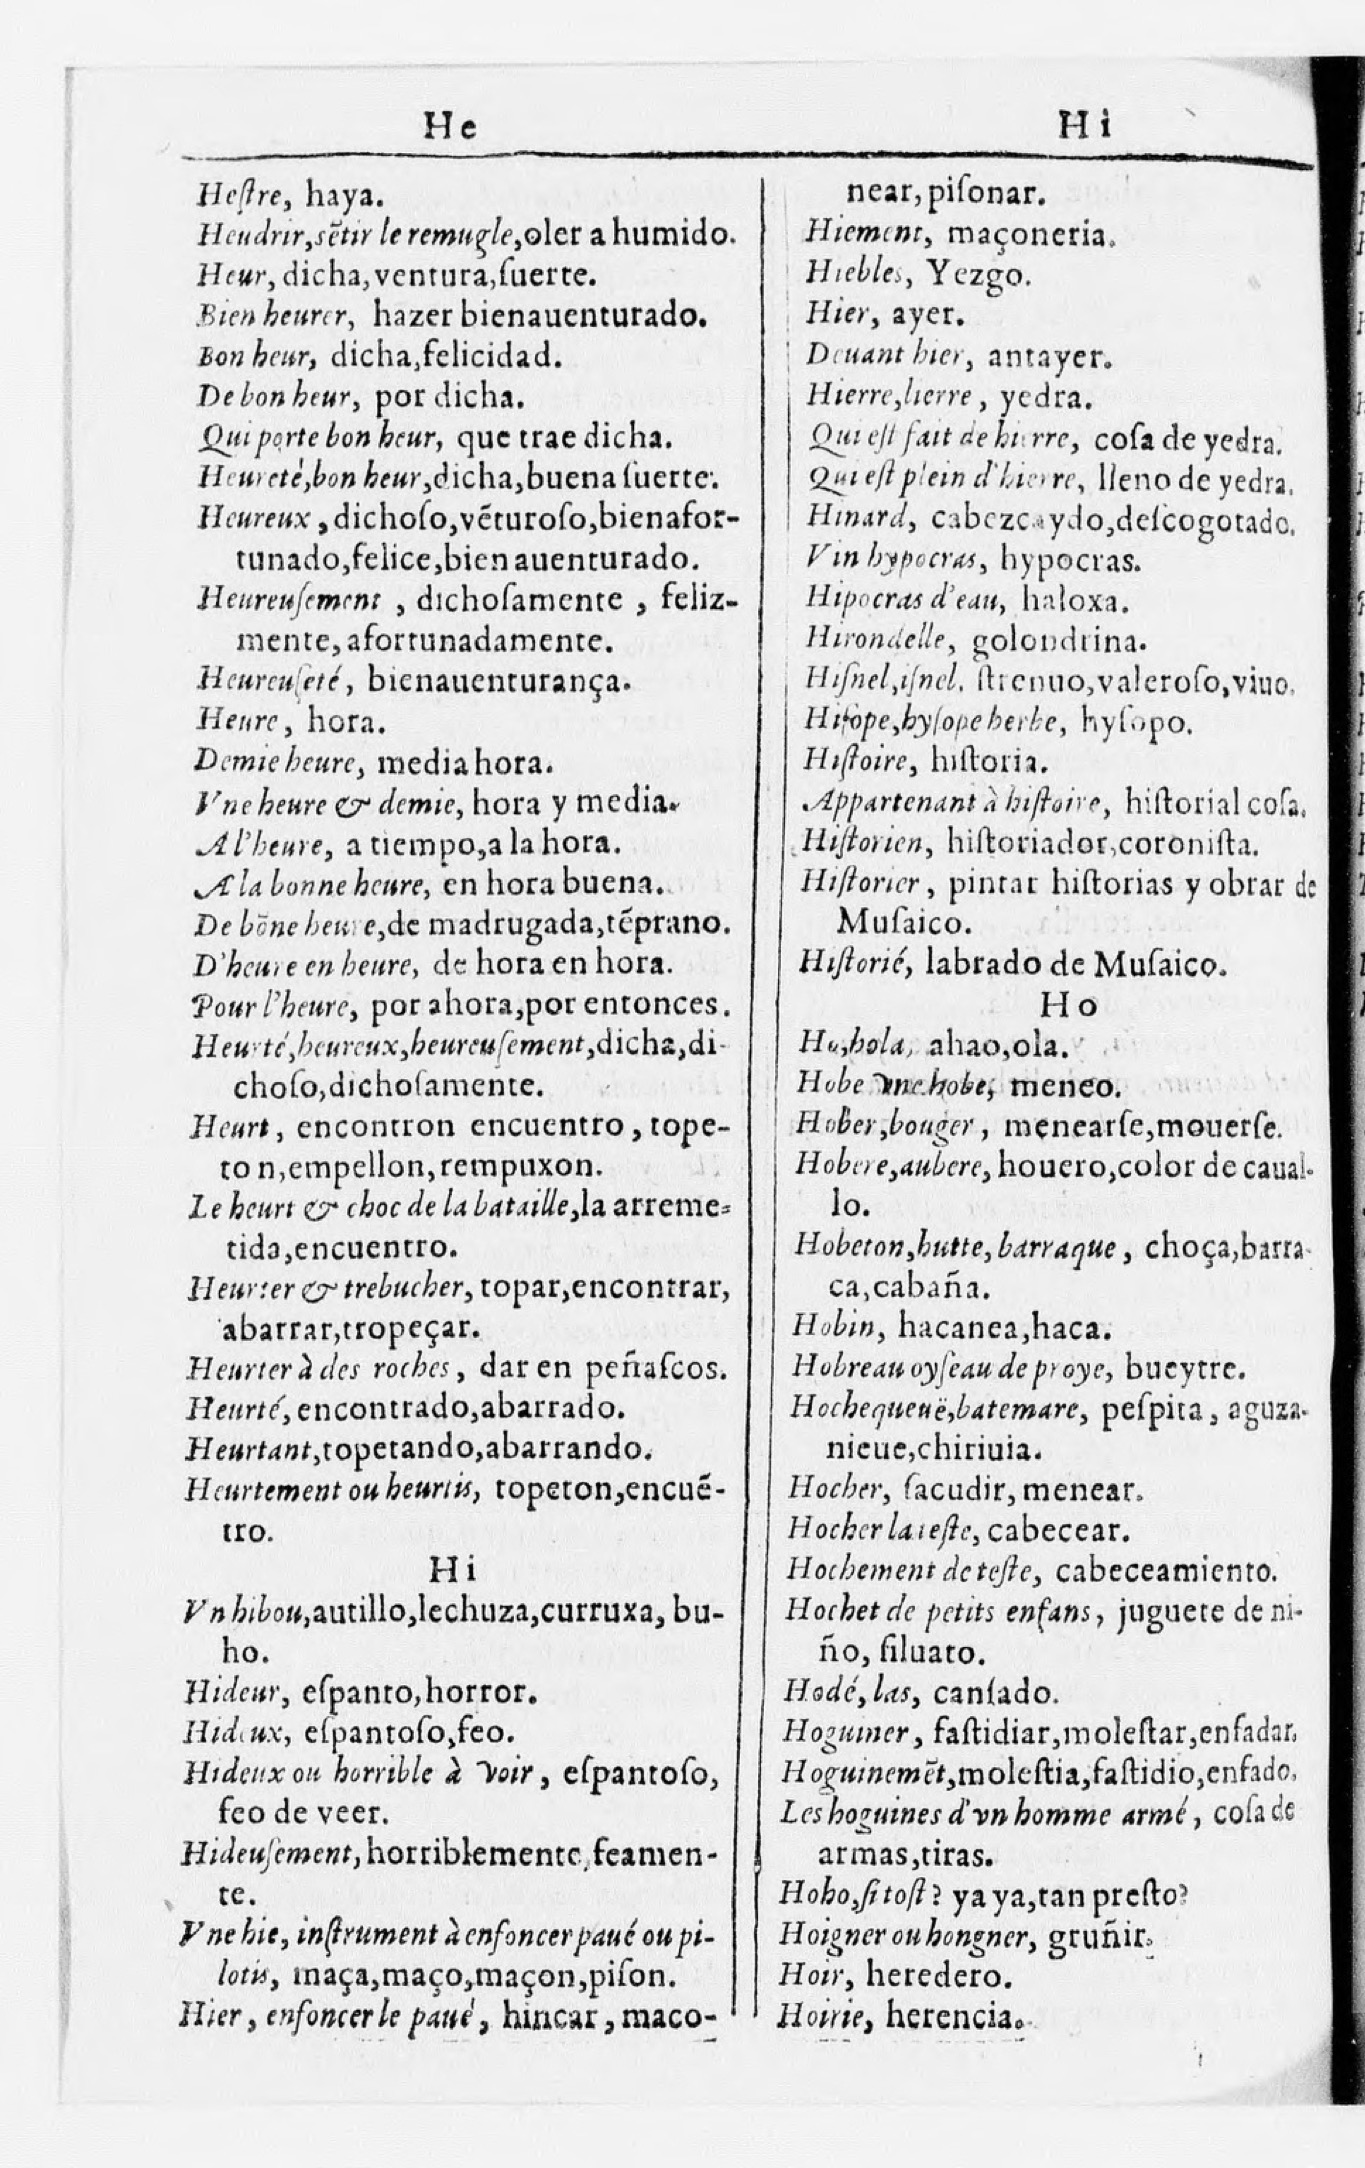 He
Hi
Heſtre, haya.
Heudrir, sẽtir le remugle, oler a humido.
Heur, dicha, ventura, ſuerte.
Bien heurer, hazer bienauenturado.
Bon heur, dicha, felicidad.
De bon heur, por dicha.
Qui porte bon heur, que trae dicha.
Heureté, bon heur, dicha, buena ſuerte.
Heureux, dichoſo, vẽturoſo, bienafor-
tunado, felice, bien auenturado.
Heureuſement, dichoſamente, feliz-
mente, afortunadamente.
Heureuſeté, bienauenturança.
Heure, hora.
Demie heure, media hora.
Vne heure & demie, hora y media.
A l'heure, a tiempo, a la hora.
A la bonne heure, en hora buena.
De bõne heure, de madrugada, tẽprano.
D'heure en heure, de hora en hora.
Pour l'heure, por ahora, por entonces.
Heurté, heureux, heureuſement, dicha, di-
choſo, dichoſamente.
Heurt, encontron encuentro, tope-
to n, empellon, rempuxon.
Le heurt & choc de la bataille, la arreme-
tida, encuentro.
Heurter & trebucher, topar, encontrar,
abarrar, tropeçar.
Heurter à des roches, dar en peñaſcos.
Heurté, encontrado, abarrado.
Heurtant, topetando, abarrando.
Heurtement ou heurtis, topeton, encuẽ-
tro.
Hi
Vn hibou, autillo, lechuza, curruxa, bu-
ho.
Hideur, eſpanto, horror.
Hideux, eſpantoſo, feo.
Hideux ou horrible à voir, eſpantoſo,
feo de veer.
Hideuſement, horriblemente, feamen-
te.
Vne hie, inſtrument à enfoncer paué ou pi-
lotis, maça, maço, maçon, piſon.
Hier, enfoncer le paué, hincar, maco-
near, piſonar.
Hiement, maçoneria.
Hiebles, Yezgo.
Hier, ayer.
Deuant hier, antayer.
Hierre, lierre, yedra.
Qui eſt fait de hierre, coſa de yedra.
Qui eſt plein d'hierre, lleno de yedra.
Hinard, cabezcaydo, deſcogotado.
Vin hypocras, hypocras.
Hipocras d'eau, haloxa.
Hirondelle, golondrina.
Hiſnel, iſnel, ſtrenuo, valeroſo, viuo.
Hiſope, hyſope herbe, hyſopo.
Hiſtoire, hiſtoria.
Appartenant à hiſtoire, hiſtorial coſa.
Hiſtorien, hiſtoriador, coroniſta.
Hiſtorier, pintar hiſtorias y obrar de
Muſaico.
Hiſtorié, labrado de Muſaico.
Ho
Ho, hola, ahao, ola.
Hobe vne hobe, meneo.
Hober, bouger, menearſe, mouerſe.
Hobere, aubere, houero, color de caual-
lo.
Hobeton, hutte, barraque, choça, barra-
ca, cabaña.
Hobin, hacanea, haca.
Hobreau oyſeau de proye, bueytre.
Hochequeuë, batemare, peſpita, aguza-
nieue, chiriuia.
Hocher, ſacudir, menear.
Hocher la teſte, cabecear.
Hochement de teſte, cabeceamiento.
Hochet de petits enfans, juguete de ni-
ño, ſiluato.
Hodé, las, canſado.
Hoguiner, faſtidiar, moleſtar, enfadar.
Hoguinemẽt, moleſtia, faſtidio, enfado.
Les hoguines d'vn homme armé, coſa de
armas, tiras.
Hoho, ſi toſt? ya ya, tan preſto?
Hoigner ou hongner, gruñir.
Hoir, heredero.
Hoirie, herencia.